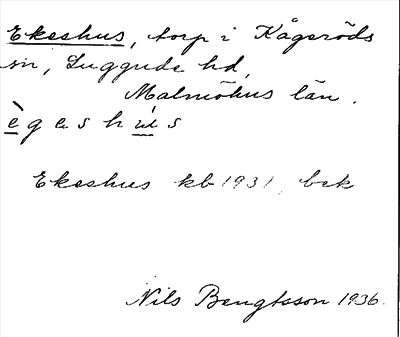 Ekeshus, torp i Kågeröds
sn, Luggude hd,
Malmöhus län.
è g e s h u s
Ekeshus kb 1931, bek
Nils Bengtsson 1936.